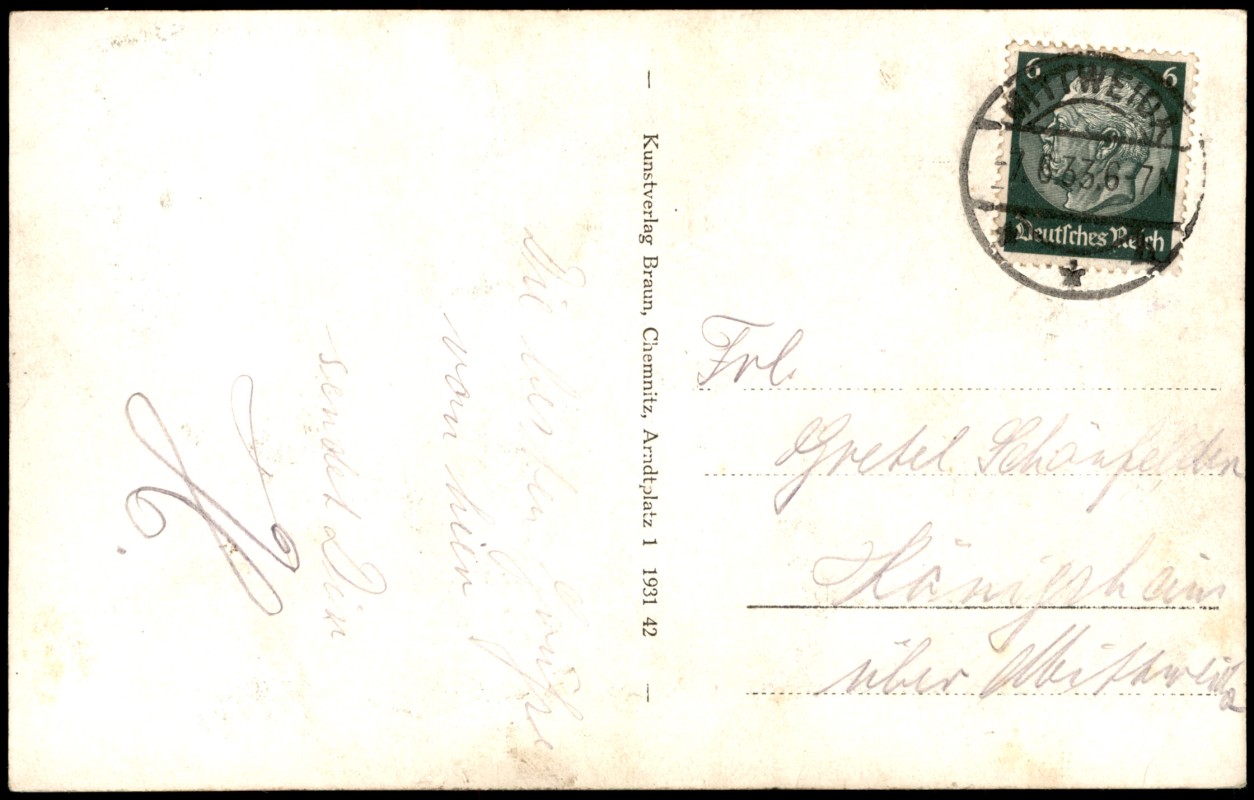 Die besten Grüße
von hier
sendet Dein
H.
Kunstverlag Braun, Chemnitz, Arndtplatz 1 1931 42
6 6
Deutsches Reich
MITTWEIDA
7.6.33.6-7N
Frl.
Gretel Schönfelder
Königshain
über Mittweida